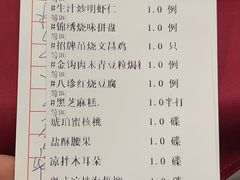 #生汁炒明虾仁 1.0 例
等叫
#锦绣烧味拼盘 1.0 例
等叫
#招牌吊烧文昌鸡 1.0 只
等叫
#金钩肉末青豆粒焗 1.0 例
等叫
#八珍红烧豆腐 1.0 例
等叫
#黑芝麻糕. 1.0 半打
等叫
琥珀蜜核桃 1.0 碟
盐酥腰果 1.0 碟
凉拌木耳朵 1.0 碟